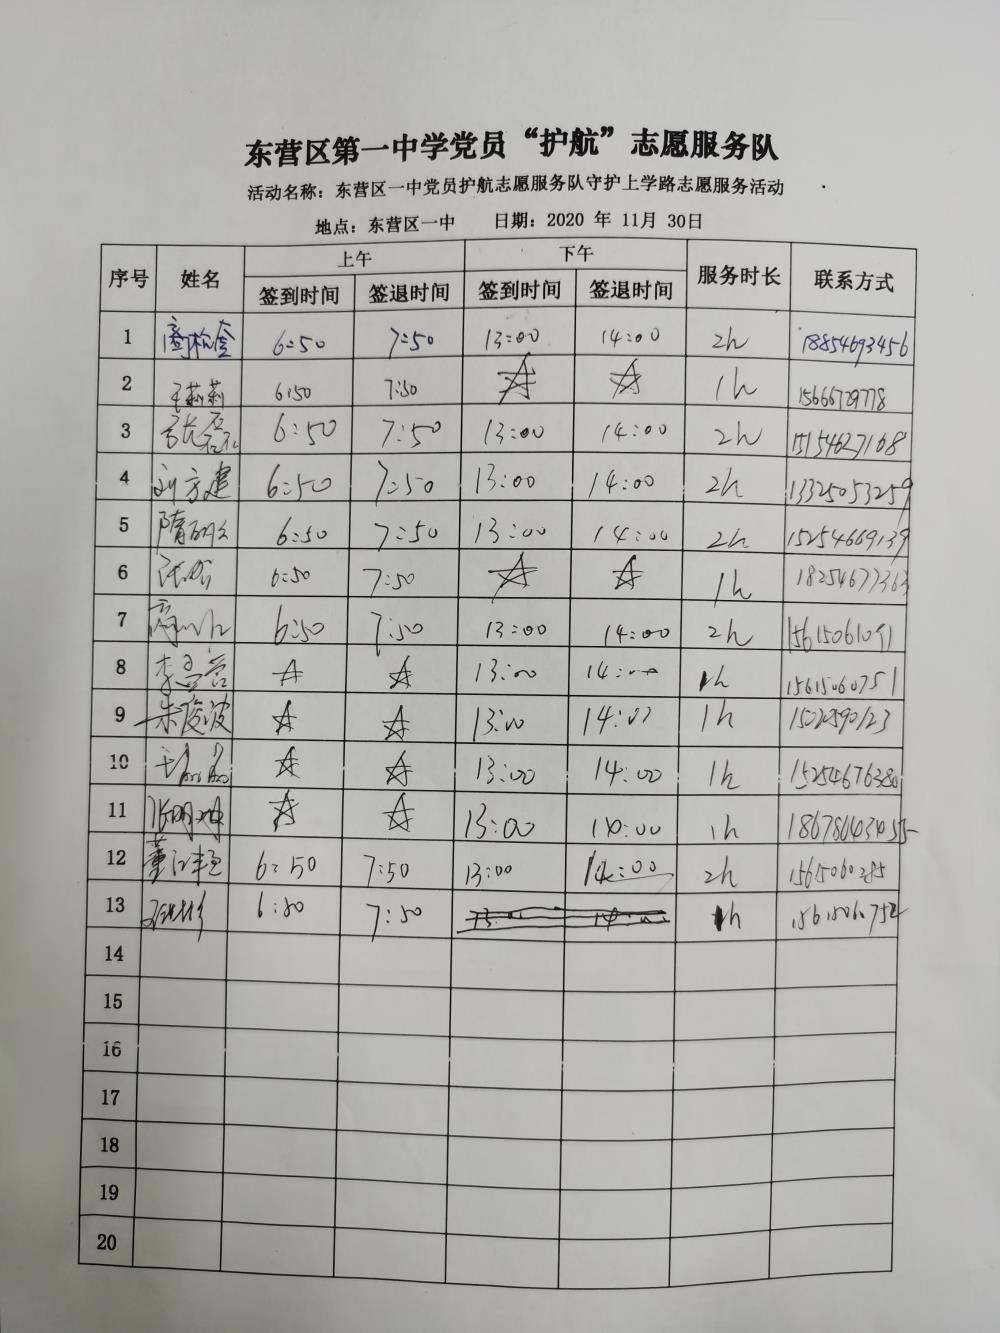 东营区第一中学党员“护航”志愿服务队
活动名称：东营区一中党员护航志愿服务队守护上学路志愿服务活动
地点：东营区一中 日期：2020 年 11月 30日
序号 姓名 上午 下午 服务时长 联系方式
签到时间 签退时间 签到时间 签退时间
1 6:50 7:50 13:00 14:00 2h 18854693456
2 王莉莉 6:50 7:50 ☆ ☆ 1h 15666729778
3 张磊 6:50 7:50 13:00 14:00 2h 15154627168
4 刘方建 6:50 7:50 13:00 14:00 2h 13325053259
5 6:50 7:50 13:00 14:00 2h 15254669139
6 6:50 7:50 ☆ ☆ 1h 18254677363
7 6:50 7:50 13:00 14:00 2h 15615061091
8 ☆ ☆ 13:00 14:00 1h 15615060751
9 朱俊波 ☆ ☆ 13:00 14:00 1h
10 ☆ ☆ 13:00 14:00 1h 15254676380
11 ☆ ☆ 13:00 14:00 1h
12 6:50 7:50 13:00 14:00 2h
13 6:50 7:50 1h
14
15
16
17
18
19
20